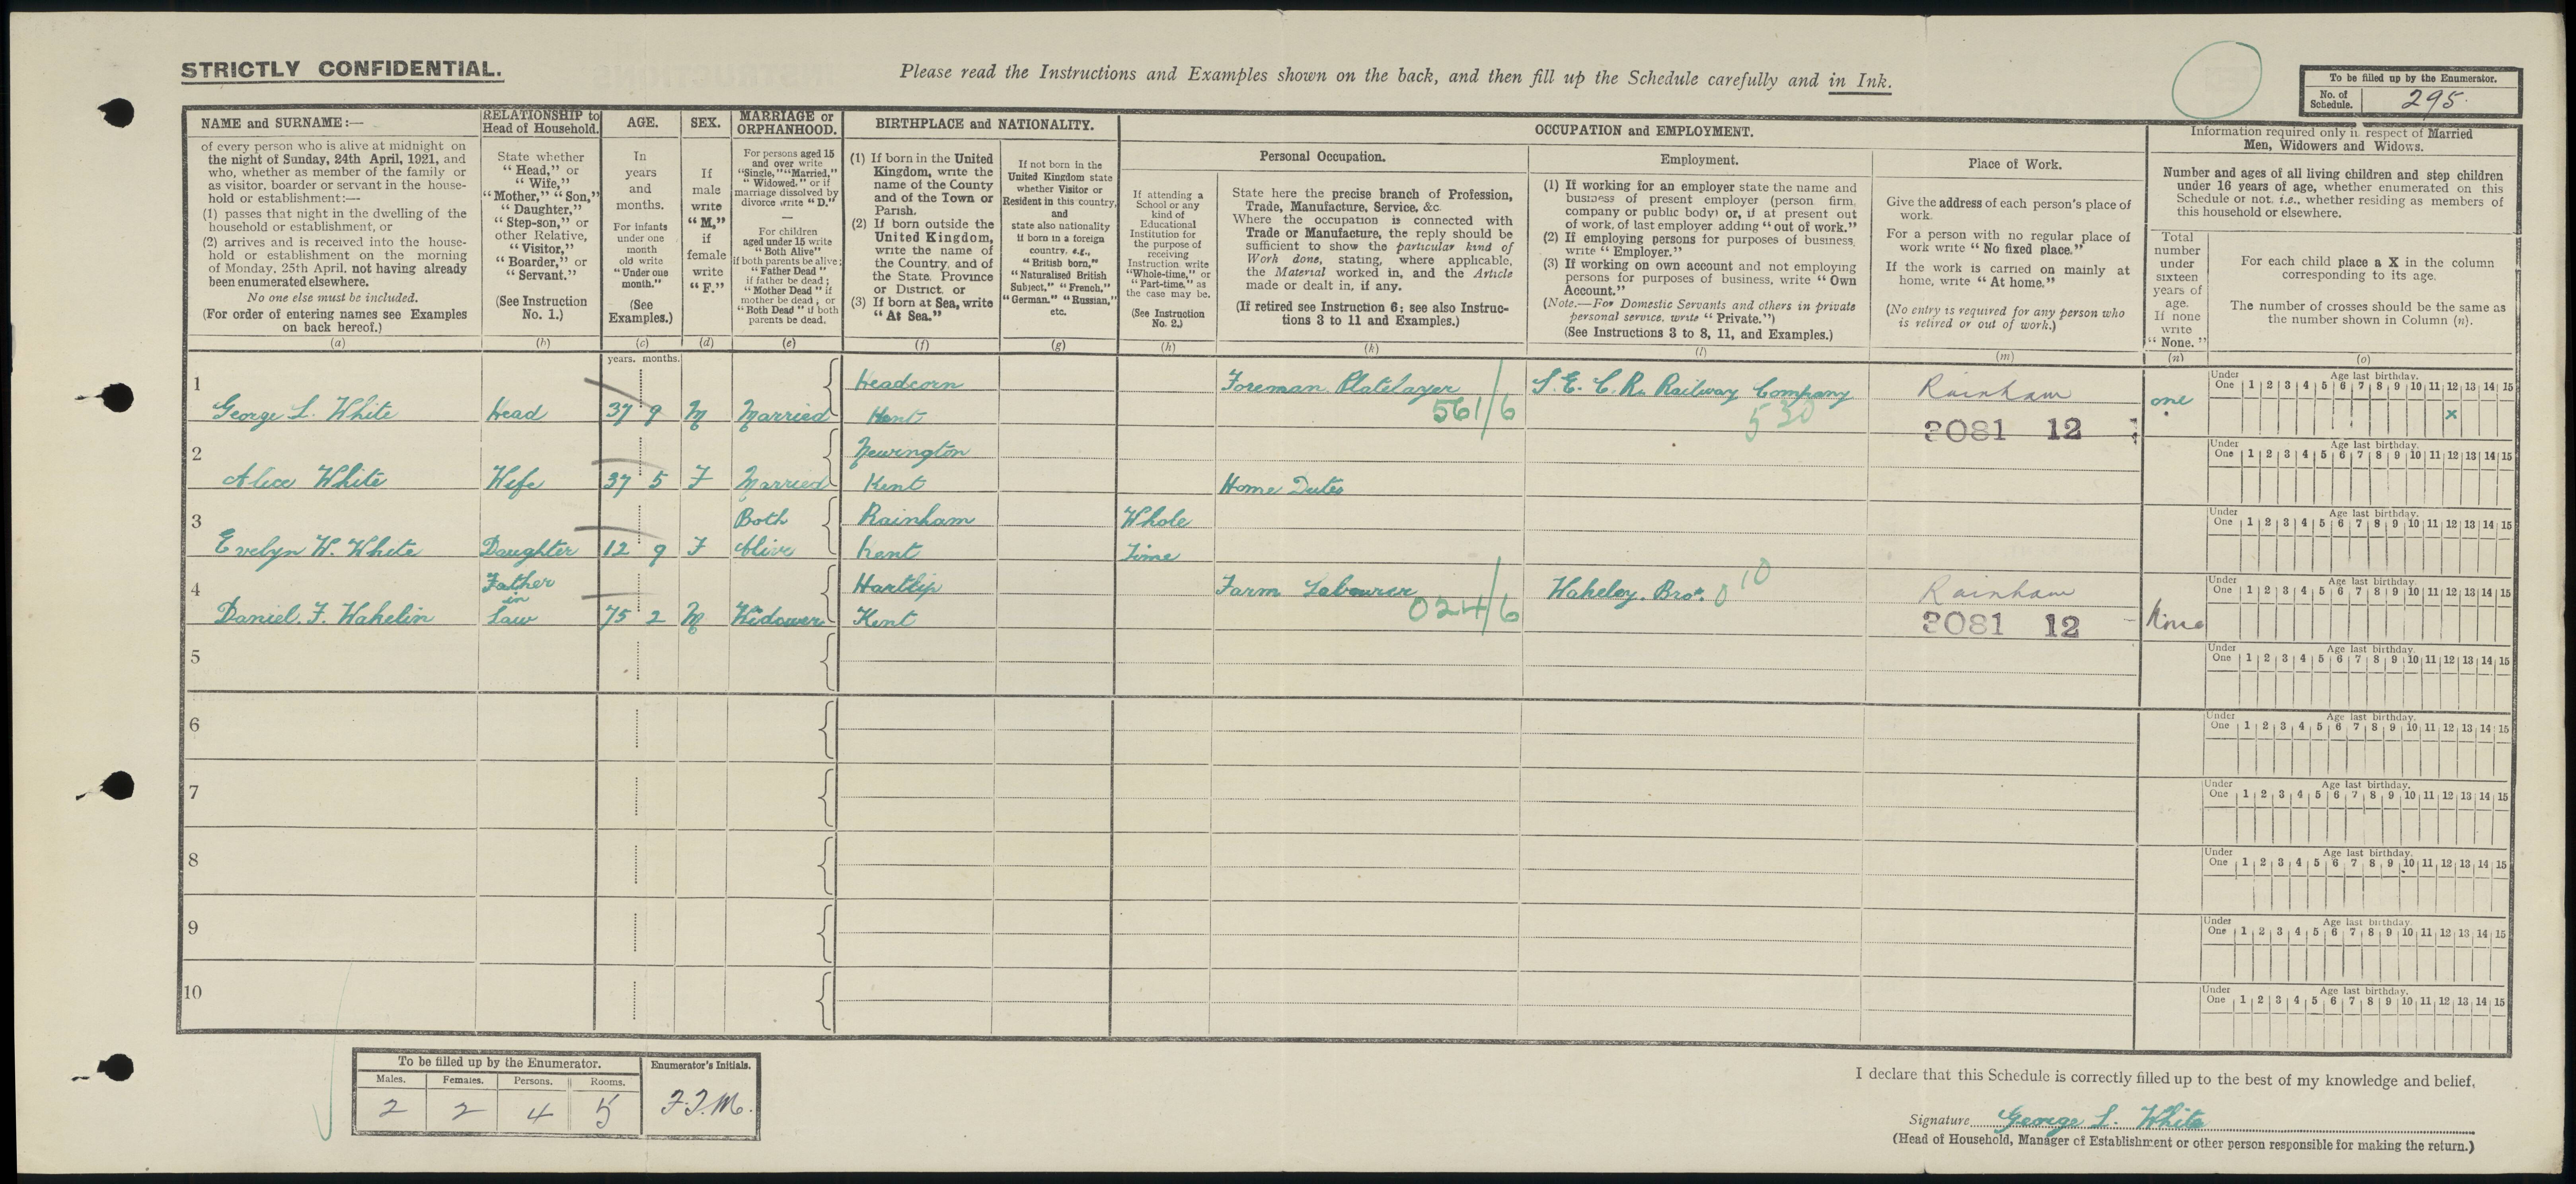 STRICTLY CONFIDENTIAL.
Please read the Instructions and Examples shown on the back, and then fill up the Schedule carefully and in Ink.
To be filled up by the Enumerator.
No. of Schedule. 295.
NAME and SURNAME:—
of every person who is alive at midnight on
the night of Sunday, 24th April, 1921, and
who, whether as member of the family or
as visitor, boarder or servant in the house-
hold or establishment:—
(1) passes that night in the dwelling of the
household or establishment, or
(2) arrives and is received into the house-
hold or establishment on the morning
of Monday, 25th April, not having already
been enumerated elsewhere.
No one else must be included.
(For order of entering names see Examples
on back hereof.)
(a)
RELATIONSHIP to
Head of Household.
State whether
"Head," or
"Wife,"
"Mother," "Son,"
"Daughter,"
"Step-son," or
other Relative,
"Visitor,"
"Boarder," or
"Servant."
(See Instruction
No. 1.)
(b)
AGE.
In
years
and
months.
For infants
under one
month
old write
"Under one
month."
(See
Examples.)
(c)
SEX.
If
male
write
"M,"
if
female
write
"F."
(d)
MARRIAGE or
ORPHANHOOD.
For persons aged 15
and over write
"Single," "Married,"
"Widowed," or if
marriage dissolved by
divorce write "D."
—
For children
aged under 15 write
"Both Alive"
if both parents be alive;
"Father Dead"
if father be dead;
"Mother Dead" if
mother be dead; or
"Both Dead" if both
parents be dead.
(e)
BIRTHPLACE and NATIONALITY.
(1) If born in the United
Kingdom, write the
name of the County
and of the Town or
Parish.
(2) If born outside the
United Kingdom,
write the name of
the Country, and of
the State, Province
or District. or
(3) If born at Sea, write
"At Sea."
(f)
If not born in the
United Kingdom state
whether Visitor or
Resident in this country,
and
state also nationality
if born in a foreign
country, e.g.,
"British born,"
"Naturalised British
Subject," "French,"
"German," "Russian,"
etc.
(g)
OCCUPATION and EMPLOYMENT.
Personal Occupation.
If attending a
School or any
kind of
Educational
Institution for
the purpose of
receiving
Instruction, write
"Whole-time," or
"Part-time," as
the case may be.
(See Instruction
No. 2.)
(h)
State here the precise branch of Profession,
Trade, Manufacture, Service, &c.
Where the occupation is connected with
Trade or Manufacture, the reply should be
sufficient to show the particular kind of
Work done, stating, where applicable,
the Material worked in, and the Article
made or dealt in, if any.
(If retired see Instruction 6; see also Instruc-
tions 3 to 11 and Examples.)
(k)
Employment.
(1) If working for an employer state the name and
business of present employer (person firm,
company or public body) or, if at present out
of work, of last employer adding "out of work."
(2) If employing persons for purposes of business,
write "Employer."
(3) If working on own account and not employing
persons for purposes of business, write "Own
Account."
(Note.—For Domestic Servants and others in private
personal service, write "Private.")
(See Instructions 3 to 8, 11, and Examples.)
(l)
Place of Work.
Give the address of each person's place of
work.
For a person with no regular place of
work write "No fixed place."
If the work is carried on mainly at
home, write "At home."
(No entry is required for any person who
is retired or out of work.)
(m)
Information required only in respect of Married
Men, Widowers and Widows.
Number and ages of all living children and step children
under 16 years of age, whether enumerated on this
Schedule or not, i.e., whether residing as members of
this household or elsewhere.
Total
number
under
sixteen
years of
age.
If none
write
"None."
(n)
For each child place a X in the column
corresponding to its age.
The number of crosses should be the same as
the number shown in Column (n).
(o)
years. months.
1 Headcorn Foreman Platelayer S. E. C. R. Railway Company Rainham
George L. White Head 37 9 M Married Kent 561/6 530 3081 12 one x
Under One Age last birthday. 1 2 3 4 5 6 7 8 9 10 11 12 13 14 15
2 Newington
Alice White Wife 37 5 F Married Kent Home Dutes
Under One Age last birthday. 1 2 3 4 5 6 7 8 9 10 11 12 13 14 15
3 Both Rainham Whole
Evelyn W. White Daughter 12 9 F Alive Kent Time
Under One Age last birthday. 1 2 3 4 5 6 7 8 9 10 11 12 13 14 15
4 Father in Hartlip Farm Labourer Wakeley. Bros. 010 Rainham
Daniel. F. Wakelin Law 75 2 M Widower Kent 024/6 3081 12 None
Under One Age last birthday. 1 2 3 4 5 6 7 8 9 10 11 12 13 14 15
5
Under One Age last birthday. 1 2 3 4 5 6 7 8 9 10 11 12 13 14 15
6
Under One Age last birthday. 1 2 3 4 5 6 7 8 9 10 11 12 13 14 15
7
Under One Age last birthday. 1 2 3 4 5 6 7 8 9 10 11 12 13 14 15
8
Under One Age last birthday. 1 2 3 4 5 6 7 8 9 10 11 12 13 14 15
9
Under One Age last birthday. 1 2 3 4 5 6 7 8 9 10 11 12 13 14 15
10
Under One Age last birthday. 1 2 3 4 5 6 7 8 9 10 11 12 13 14 15
To be filled up by the Enumerator.
Males. Females. Persons. Rooms.
2 2 4 5
Enumerator's Initials.
F.J.M.
I declare that this Schedule is correctly filled up to the best of my knowledge and belief,
Signature George L. White
(Head of Household, Manager of Establishment or other person responsible for making the return.)